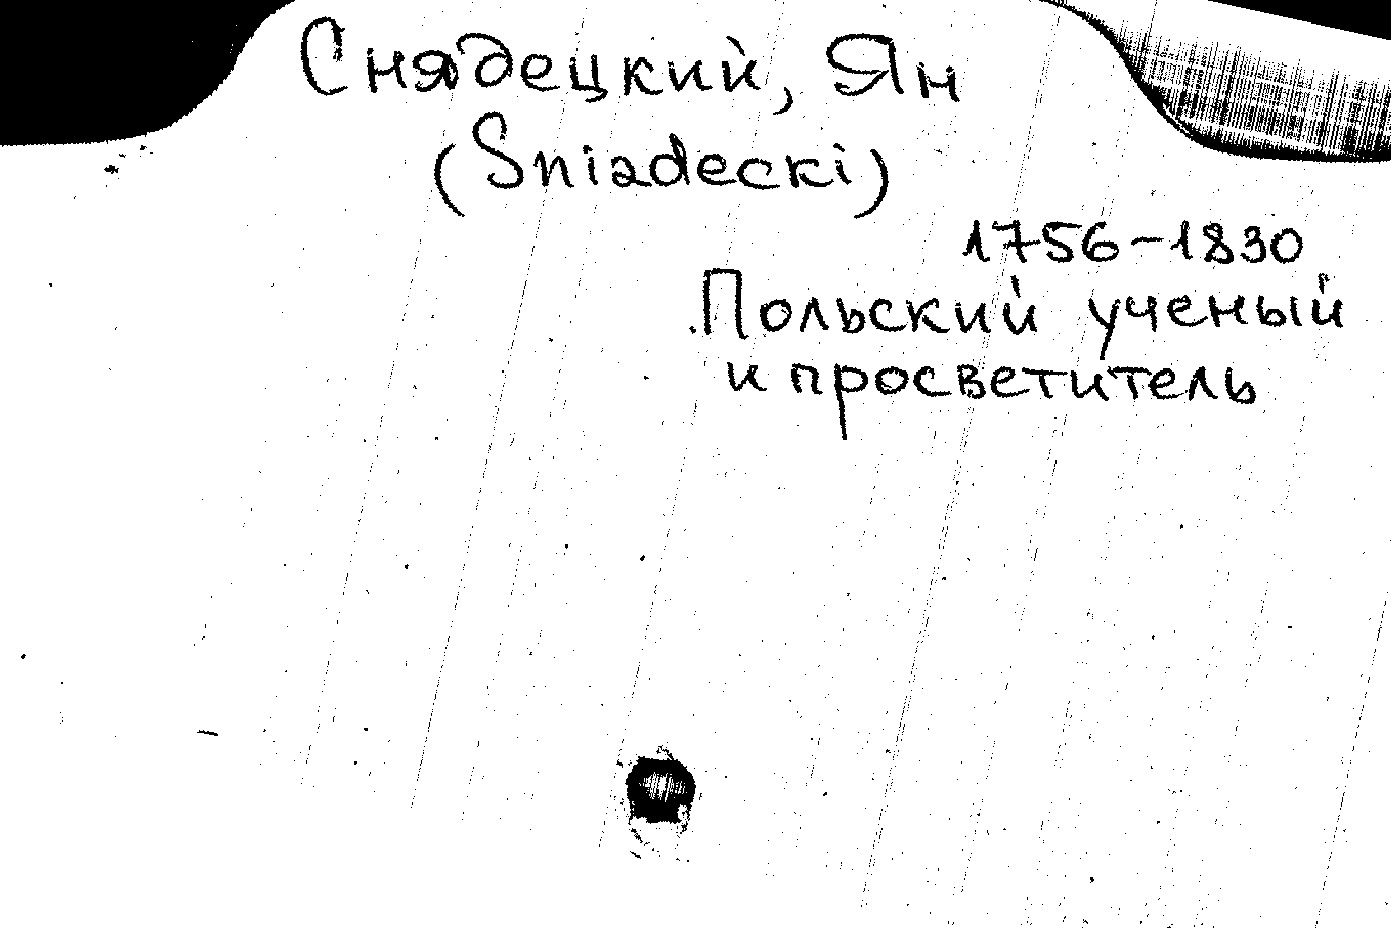 Снядецкий, Ян
(Sniadecki)
1756-1830
Польский ученый
и просветитель